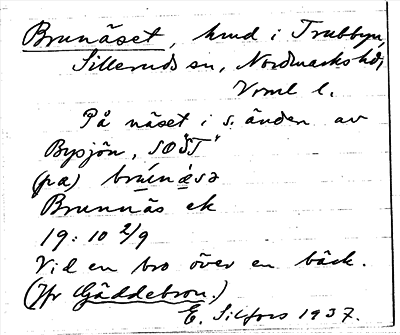 Brunäset, hmd i Trubbyn,
Silleruds sn, Nordmarks hd,
Vrml l.
På näset i s. änden av
Bysjön, SO"ST"
(pa) bruinäsə
Brunnäs ek
19:10 2/9
Vid en bro över en bäck.
(Jfr Gäddebron.)
E. Silfors 1937.